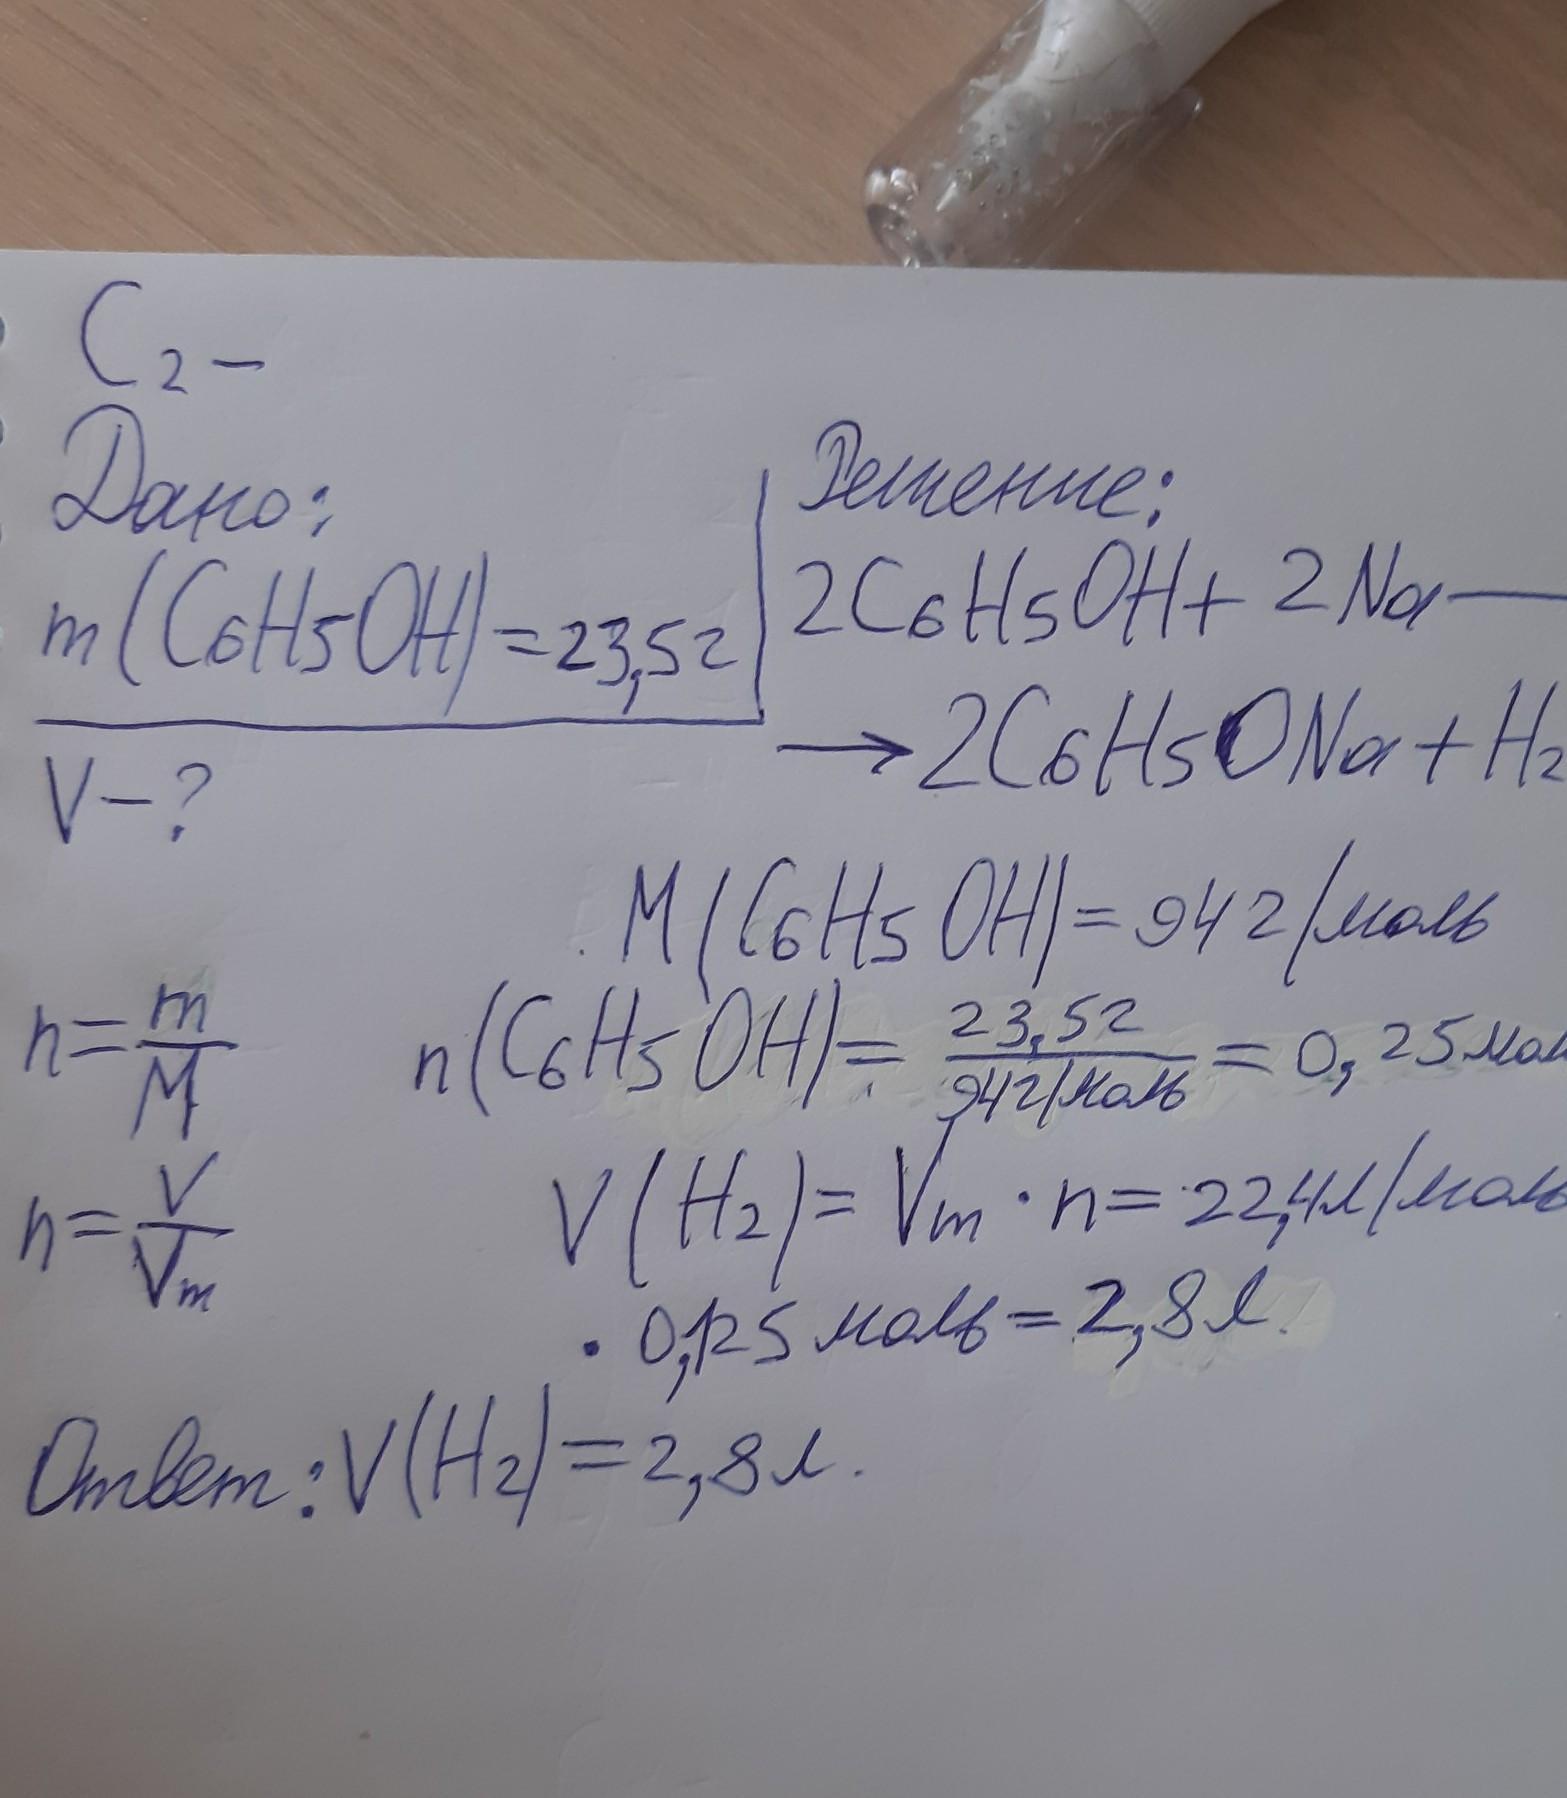 C₂ –
Дано:
m(C₆H₅OH) = 23,5г
V – ?
Решение:
2C₆H₅OH + 2Na —
→ 2C₆H₅ONa + H₂
M(C₆H₅OH) = 94г/моль
n = m/M
n(C₆H₅OH) = 23,5г/94г/моль = 0,25мол
n = V/Vm
V(H₂) = Vm · n = 22,4л/моль
· 0,125 моль = 2,8л.
Ответ: V(H₂) = 2,8л.